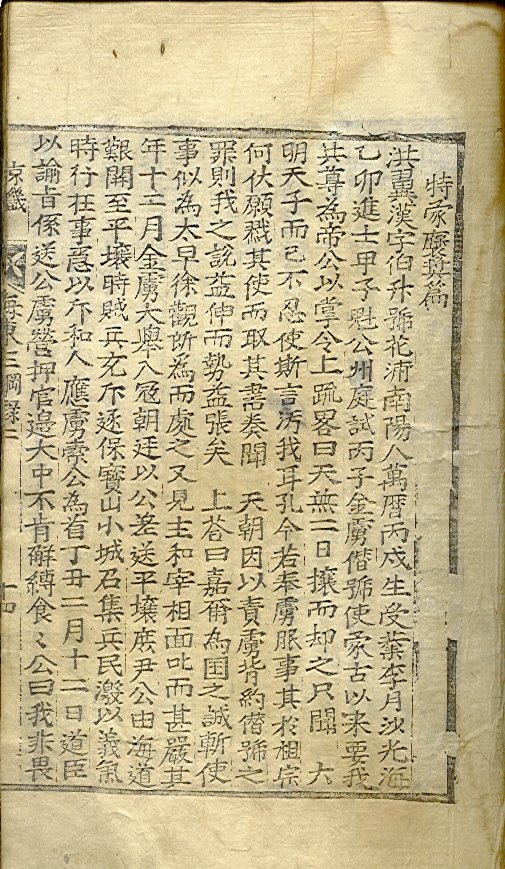 特蒙褒異篇
洪翼漢字伯升號花浦南陽人萬曆丙戌生受業李月沙光海
乙卯進士甲子魁公州庭試丙子金虜僭號使蒙古以來要我
共尊為帝公以掌令上疏畧曰天無二日攘而却之只聞 大
明天子而已不忍使斯言汚我耳孔今若奉虜服事其於祖宗
何伏願戮其使而取其書奏聞 天朝因以責虜背約僭號之
罪則我之說益伸而勢益張矣 上答曰嘉爾為国之誠斬使
事似為大早徐觀所為而處之又見主和宰相面叱而甚嚴其
年十二月金虜大舉入冦朝廷以公差送平壤庶尹公由海道
艱關至平壤時賊兵充斥逐保寶山小城召集兵民激以義氣
時行在事急以斥和人應虜索公為首丁丑二月十二日道臣
以諭旨係送公虜營押官邉大中不肯解縛食〻公曰我非畏
京畿
海東三綱錄二
十四